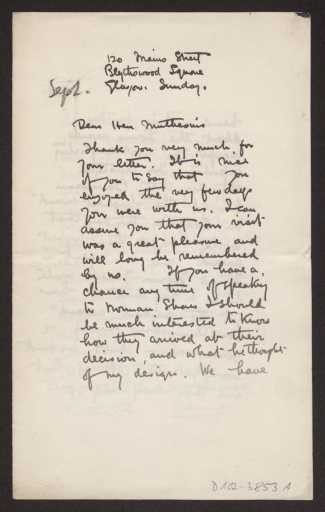 120 Mains Street
Blythswood Square
Glasgow. Sunday.
Sept.
Dear Herr Muthesius
Thank you very much for
your letter. It is nice
of you to say that you
enjoyed the very few days
you were with us. I can
assure you that your visit
was a great pleasure and
will long be remembered
by us. If you have a
chance any time of speaking
to Norman Shaw I should
be much interested to know
how they arrived at their
decision, and what he thought
of my design. We have
D 102-3853 A